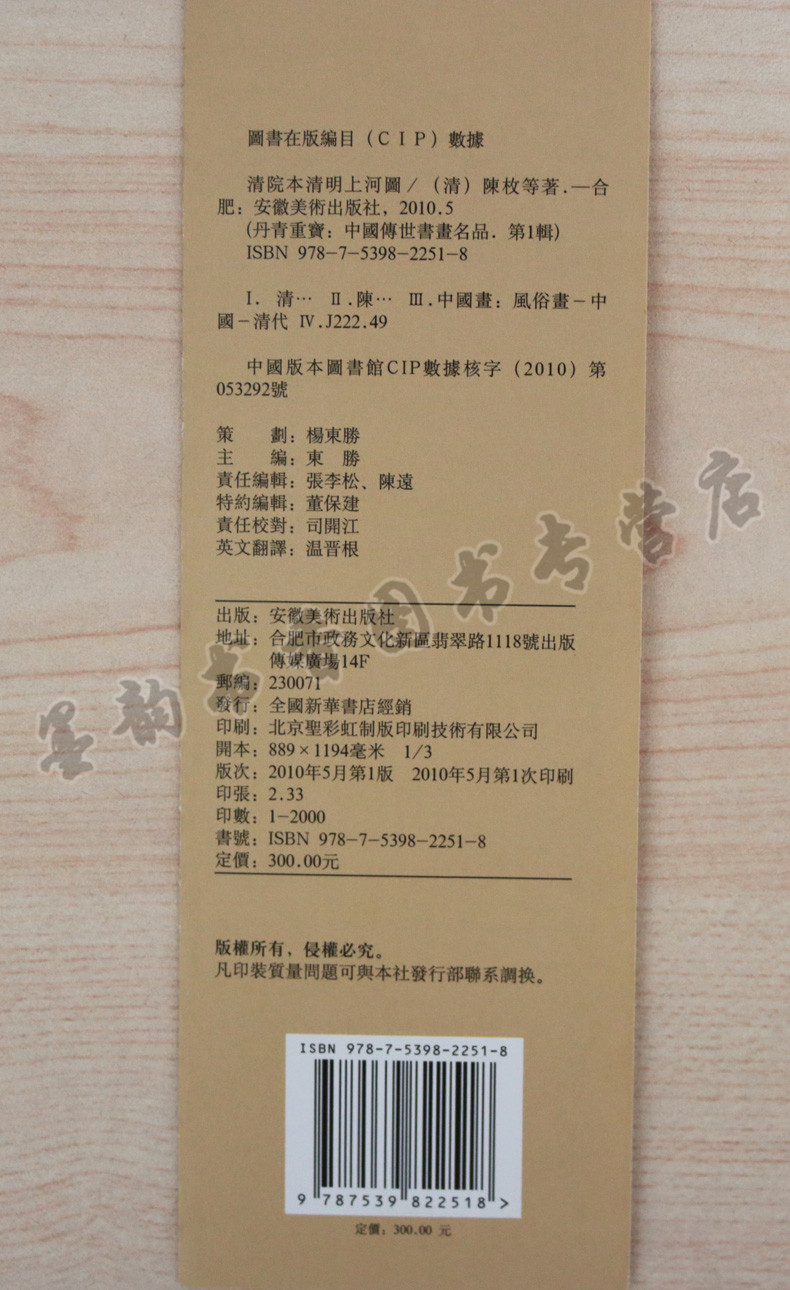 圖書在版編目（CIP）數據
清院本清明上河圖／（清）陳枚等著.—合
肥：安徽美術出版社，2010.5
(丹青重寶：中國傳世書畫名品．第1輯)
ISBN 978-7-5398-2251-8
Ⅰ. 清… Ⅱ.陳… Ⅲ.中國畫：風俗畫－中
國－清代 Ⅳ.J222.49
中國版本圖書館CIP數據核字（2010）第
053292號
策　　劃：楊東勝
主　　編：東　勝
責任編輯：張李松、陳遠
特約編輯：董保建
責任校對：司開江
英文翻譯：温晋根
出版：安徽美術出版社
地址：合肥市政務文化新區翡翠路1118號出版
傳媒廣場14F
郵編：230071
發行：全國新華書店經銷
印刷：北京聖彩虹制版印刷技術有限公司
開本：889×1194毫米　1/3
版次：2010年5月第1版　2010年5月第1次印刷
印張：2.33
印數：1-2000
書號：ISBN 978-7-5398-2251-8
定價：300.00元
版權所有，侵權必究。
凡印裝質量問題可與本社發行部聯系調换。
ISBN 978-7-5398-2251-8
9 787539 822518 >
定價：300.00 元
墨韵书香图书专营店